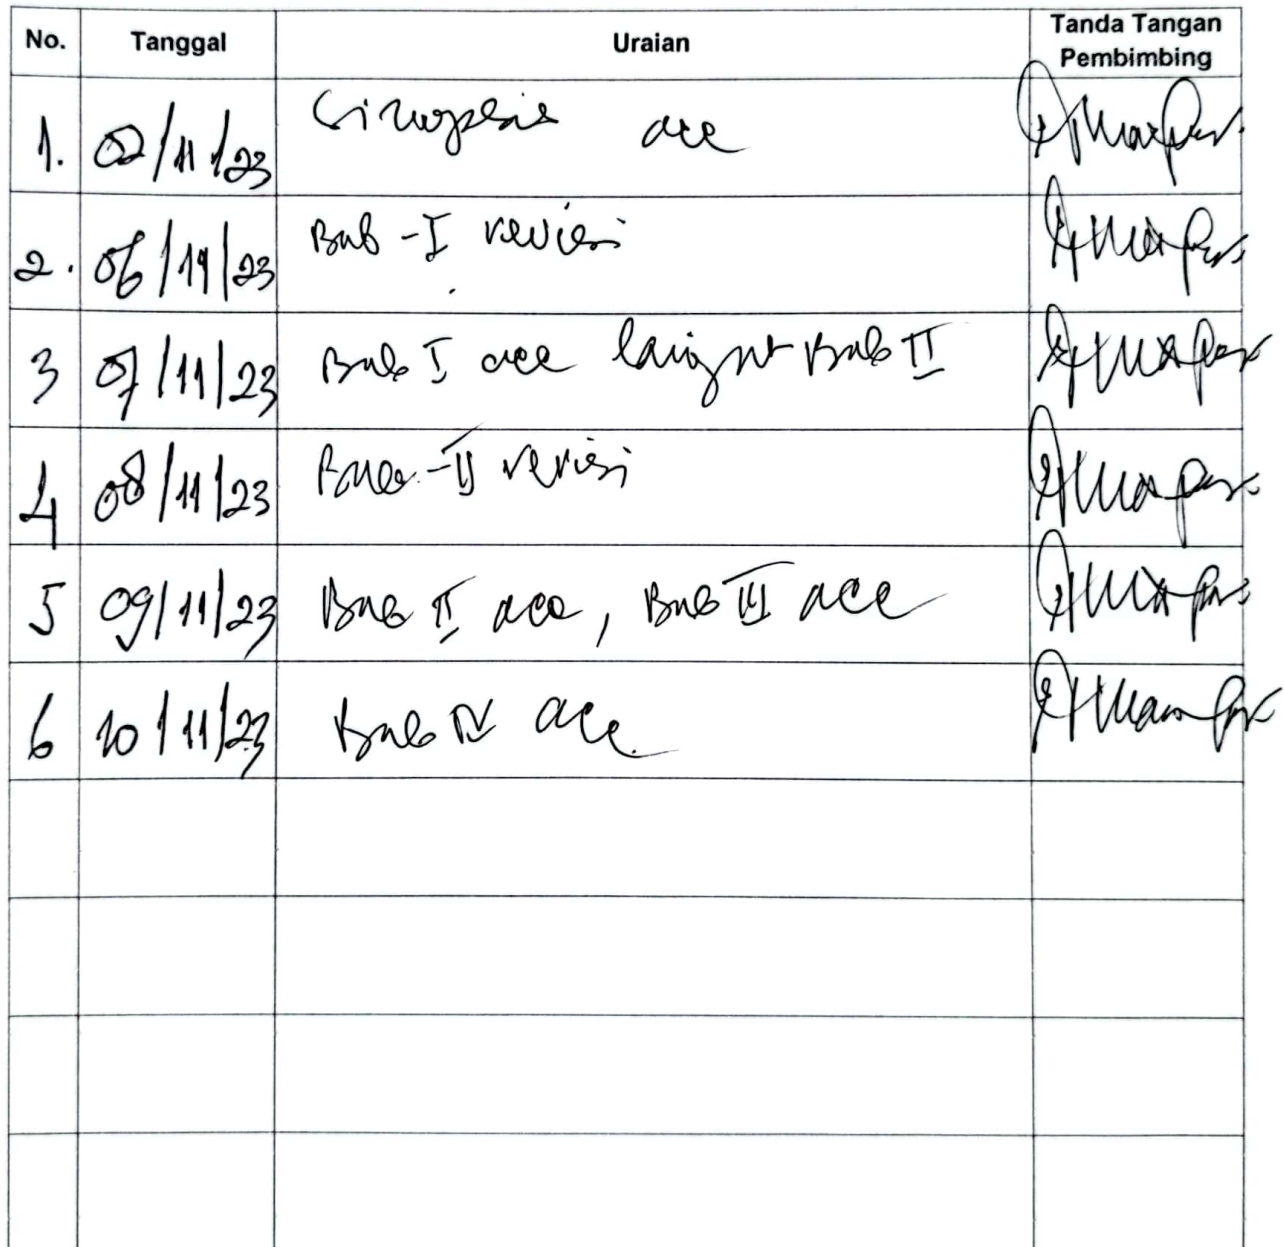 No. Tanggal Uraian Tanda Tangan
Pembimbing
1. 02/11/23 Sinopsis acc
2. 06/11/23 Bab - I revisi
3 07/11/23 Bab I acc lanjut Bab II
4 08/11/23 Bab - II revisi
5 09/11/23 Bab II acc, Bab III acc
6 10/11/23 Bab IV acc